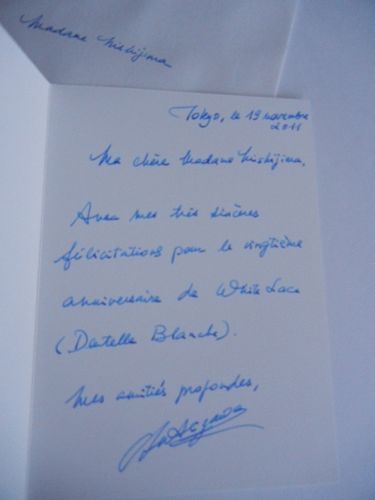 Madame Nishijima
Tokyo, le 19 novembre
2011
Ma chère Madame Nishijima,
Avec mes très sincères
félicitations pour le vingtième
anniversaire de White Lace
(Dentelle Blanche).
Mes amitiés profondes,